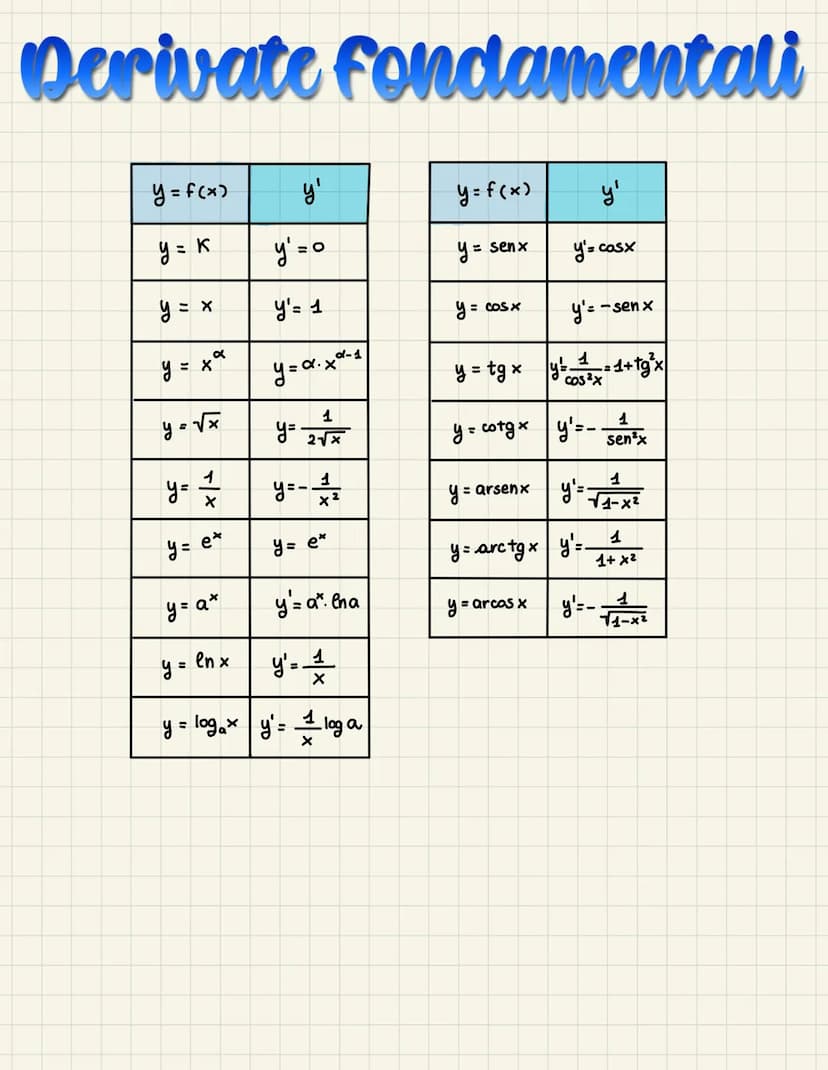 Derivate fondamentali
y = f(x) y'
y = K y' = 0
y = x y' = 1
y = x^α y = α·x^(α-1)
y = √x y = 1/(2√x)
y = 1/x y = - 1/x²
y = e^x y = e^x
y = a^x y' = a^x · ln a
y = ln x y' = 1/x
y = logₐx y' = 1/x log a
y = f(x) y'
y = senx y' = cosx
y = cosx y' = -senx
y = tg x y' = 1/cos²x = 1+tg²x
y = cotg x y' = - 1/sen²x
y = arsenx y' = 1/√(1-x²)
y = arctg x y' = 1/(1+x²)
y = arcos x y' = - 1/√(1-x²)